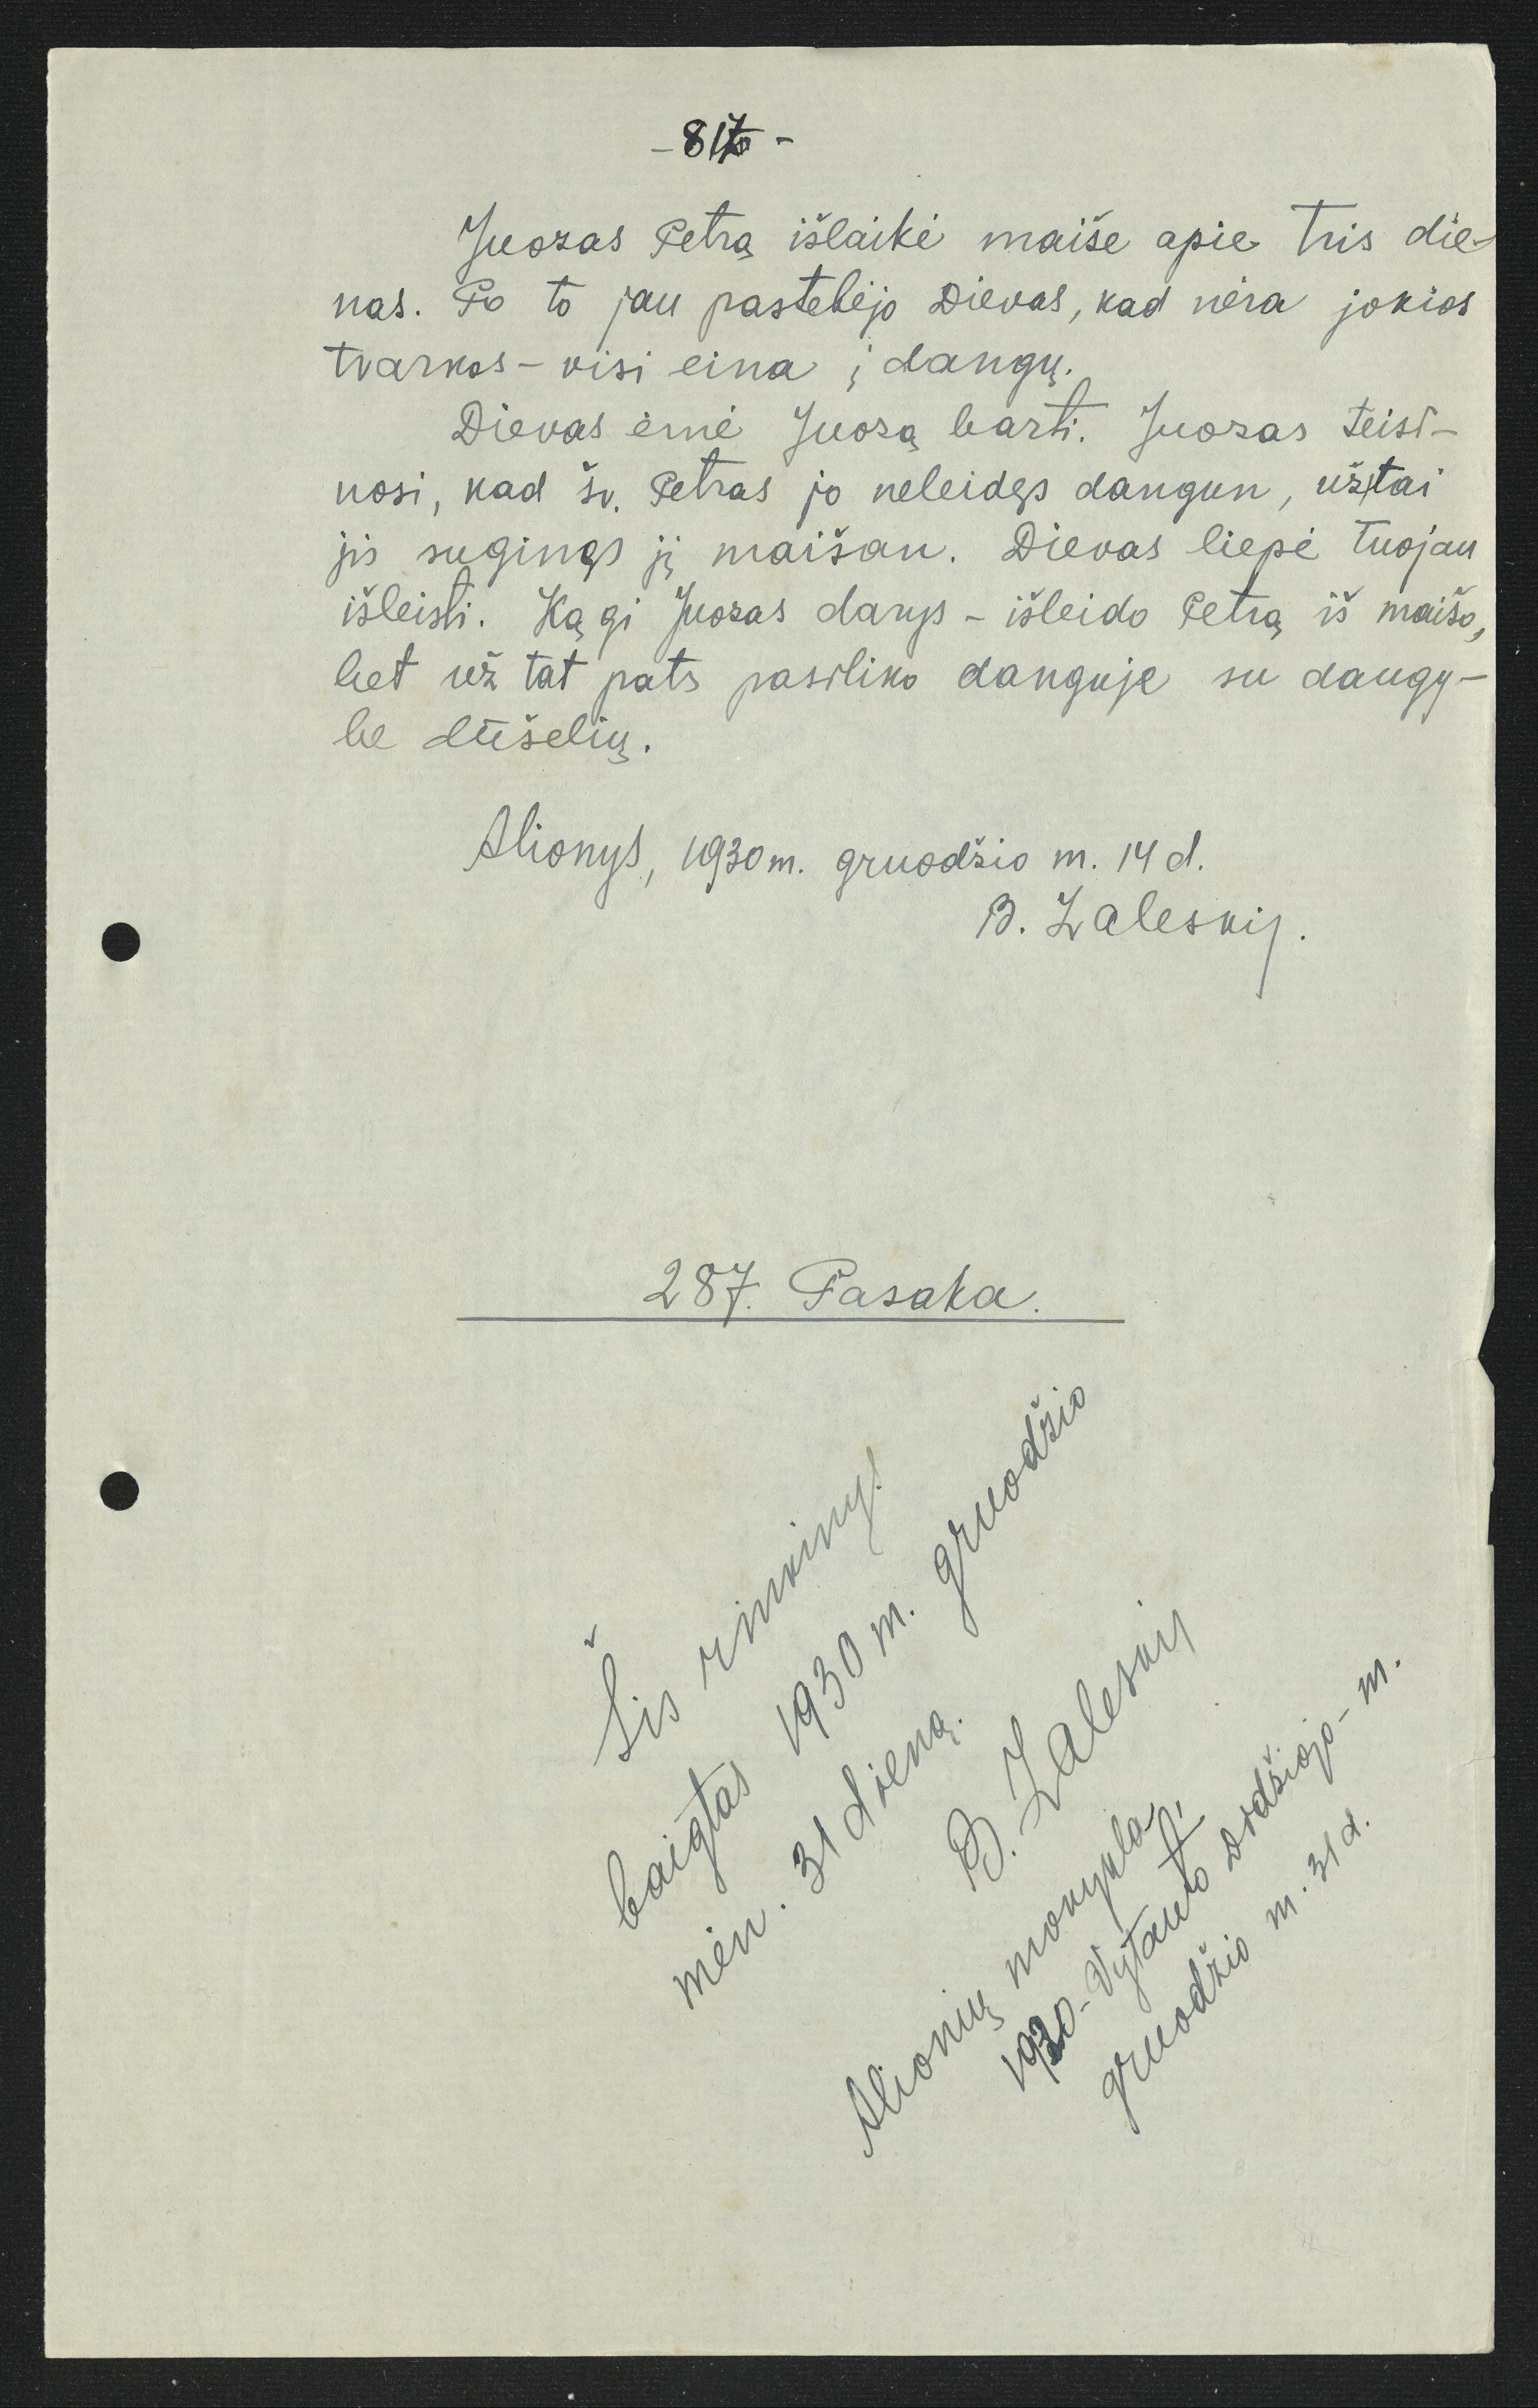 Juozas Petrą išlaikė maiše apie tris die-
nas. Po to jau pastebėjo Dievas, kad nėra jokios
tvarkos - visi eina į dangų.
Dievas ėmė Juozą barti. Juozas teisi-
nosi, kad šv. Petras jo neleidęs dangun, užtai
jis suginęs jį maišan. Dievas liepė tuojau
išleisti. Ką gi Juozas darys - išleido Petrą iš maišo,
bet už tat pats pasiliko danguje su daugy-
be dūšelių.
Alionys, 1930 m. gruodžio m. 14 d.
B. Zaleskij.
287. Pasaka.
Šis rinkinys
baigtas 1930 m. gruodžio
mėn. 31 dieną.
B. Zaleskij
Alionių mokykla,
1930 - Vytauto Didžiojo - m.
gruodžio m. 31 d.